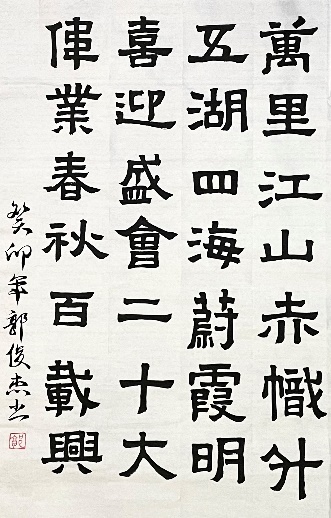 萬里江山赤幟升
五湖四海蔚霞明
喜迎盛會二十大
偉業春秋百載興
癸卯年郭俊杰书